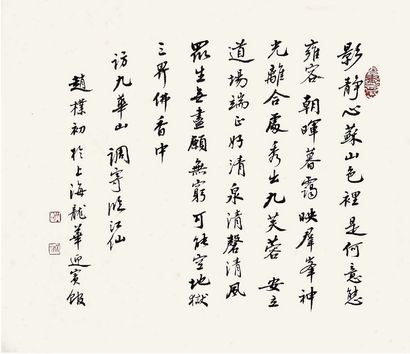 影靜心蘇山色裡是何意態
雍容朝暉暮靄映羣峯神
光離合處秀出九芙蓉 安立
道場端正好清泉清磬清風
眾生无盡願無窮可能空地獄
三界佛香中
訪九華山 調寄臨江仙
趙樸初於上海龍華迎賓館